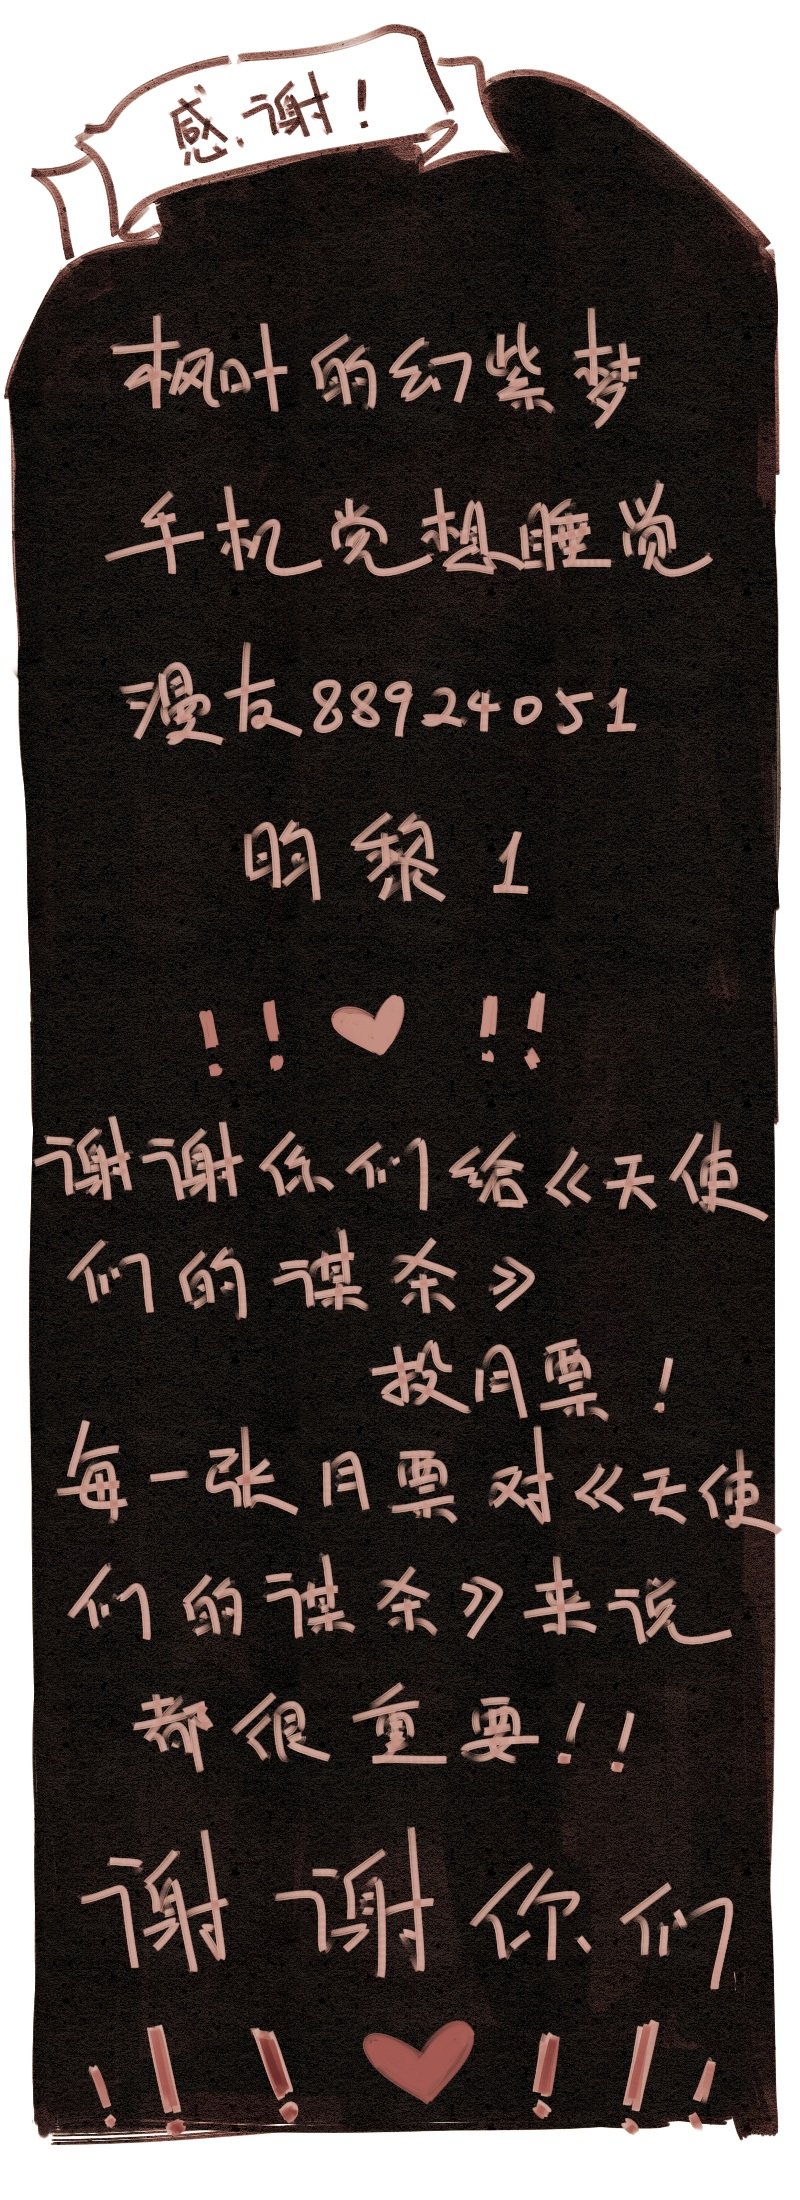 感谢!
枫叶的幻紫梦
手机党想睡觉
漫友88924051
昀黎1
!!♥!!
谢谢你们给《天使
们的谋杀》
投月票!
每一张月票对《天使
们的谋杀》来说
都很重要!!
谢谢你们
!!!♥!!!